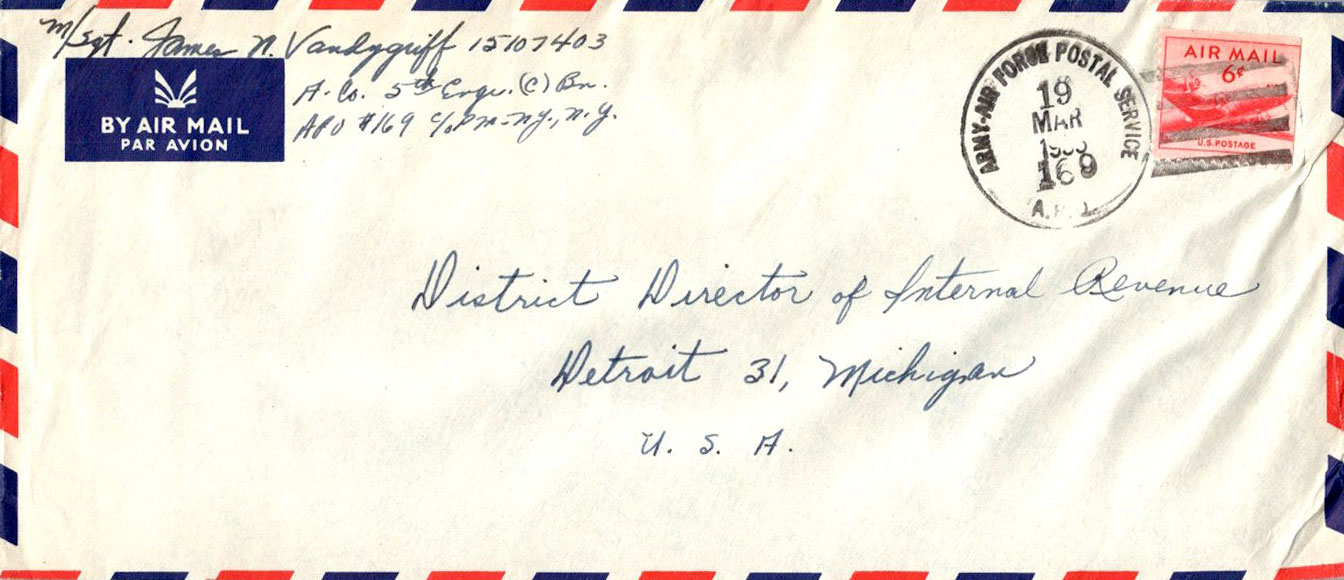 M/Sgt. James N. Vandygriff 15107403
A. Co. 5th Engr. (C) Bn.
APO #169 c/o PM - NY., N.Y.
BY AIR MAIL
PAR AVION
ARMY-AIR FORCE POSTAL SERVICE
19
MAR
169
A.P.O.
AIR MAIL
6¢
U.S. POSTAGE
District Director of Internal Revenue
Detroit 31, Michigan
U. S. A.